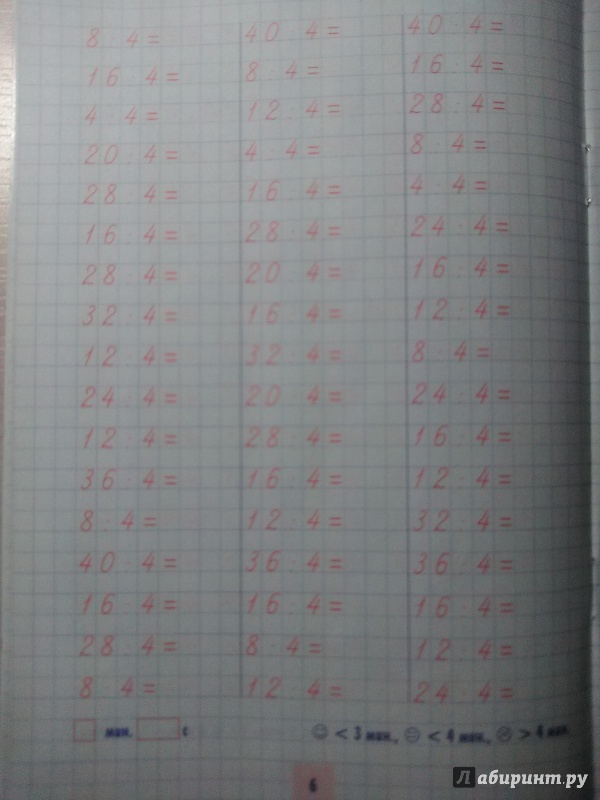 8 : 4 = 40 : 4 = 40 : 4 =
16 : 4 = 8 : 4 = 16 : 4 =
4 : 4 = 12 : 4 = 28 : 4 =
20 : 4 = 4 : 4 = 8 : 4 =
28 : 4 = 16 : 4 = 4 : 4 =
16 : 4 = 28 : 4 = 24 : 4 =
28 : 4 = 20 : 4 = 16 : 4 =
32 : 4 = 16 : 4 = 12 : 4 =
12 : 4 = 32 : 4 = 8 : 4 =
24 : 4 = 20 : 4 = 24 : 4 =
12 : 4 = 28 : 4 = 16 : 4 =
36 : 4 = 16 : 4 = 12 : 4 =
8 : 4 = 12 : 4 = 32 : 4 =
40 : 4 = 36 : 4 = 36 : 4 =
16 : 4 = 16 : 4 = 16 : 4 =
28 : 4 = 8 : 4 = 12 : 4 =
8 : 4 = 12 : 4 = 24 : 4 =
мин. с ☺ < 3 мин., 😐 < 4 мин., ☹ > 4 мин.
6
Лабиринт.ру